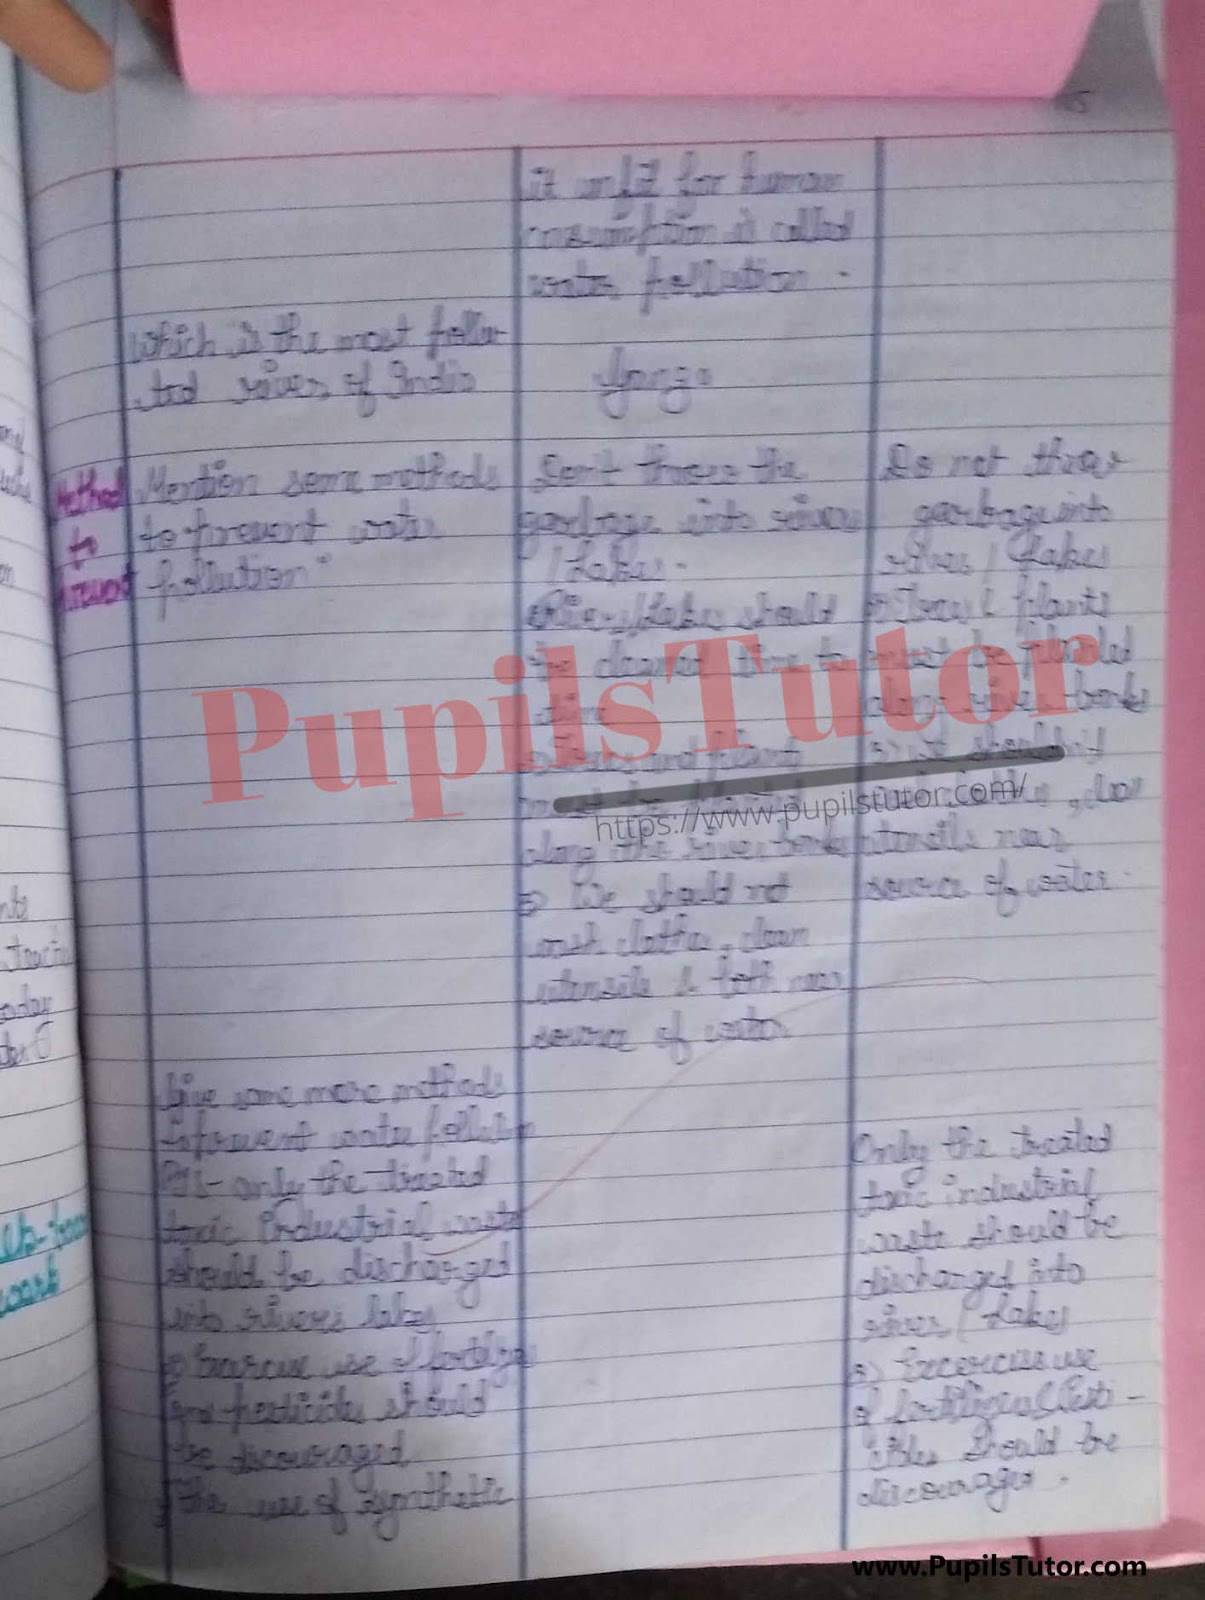 15
it unfit for human
consumption is called
water pollution.
Which is the most pollu-
ted river of India
Ganga
Method
to
prevent
Mention some methods
to prevent water
pollution?
Don't throw the
garbage into rivers
/ Lakes.
River/Lakes should
be cleaned time to
time
Trees and plants
must be
along the river banks
3) We should not
wash clothes, clean
utensils & bath near
source of water
Do not throw
garbage into
rivers / Lakes
2) Trees & plants
must be planted
along river banks
3) It shouldn't
clean
utensils near
source of water.
Give some more methods
to prevent water pollution
only the treated
toxic industrial waste
should be discharged
into rivers lakes
use of fertilizer
and pesticides should
be discouraged
The use of synthetic
Only the treated
toxic industrial
waste should be
discharged into
river / Lakes
2) Excercise use
of fertilizers & Pesti-
cides should be
discourages.
PupilsTutor
https://www.pupilstutor.com/
www.PupilsTutor.com